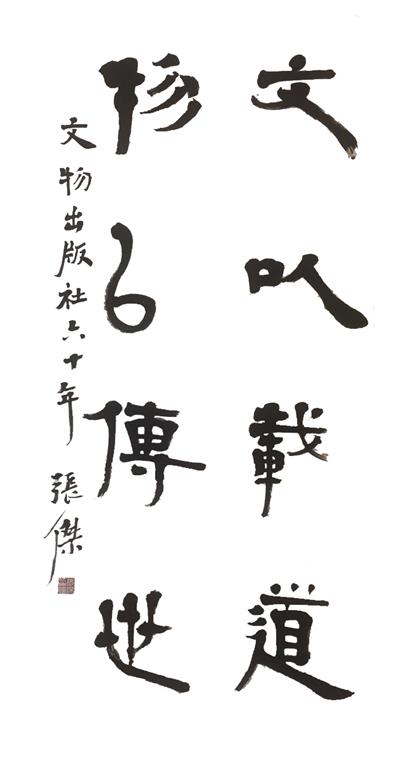 文以載道
物以傳世
文物出版社六十年 張傑